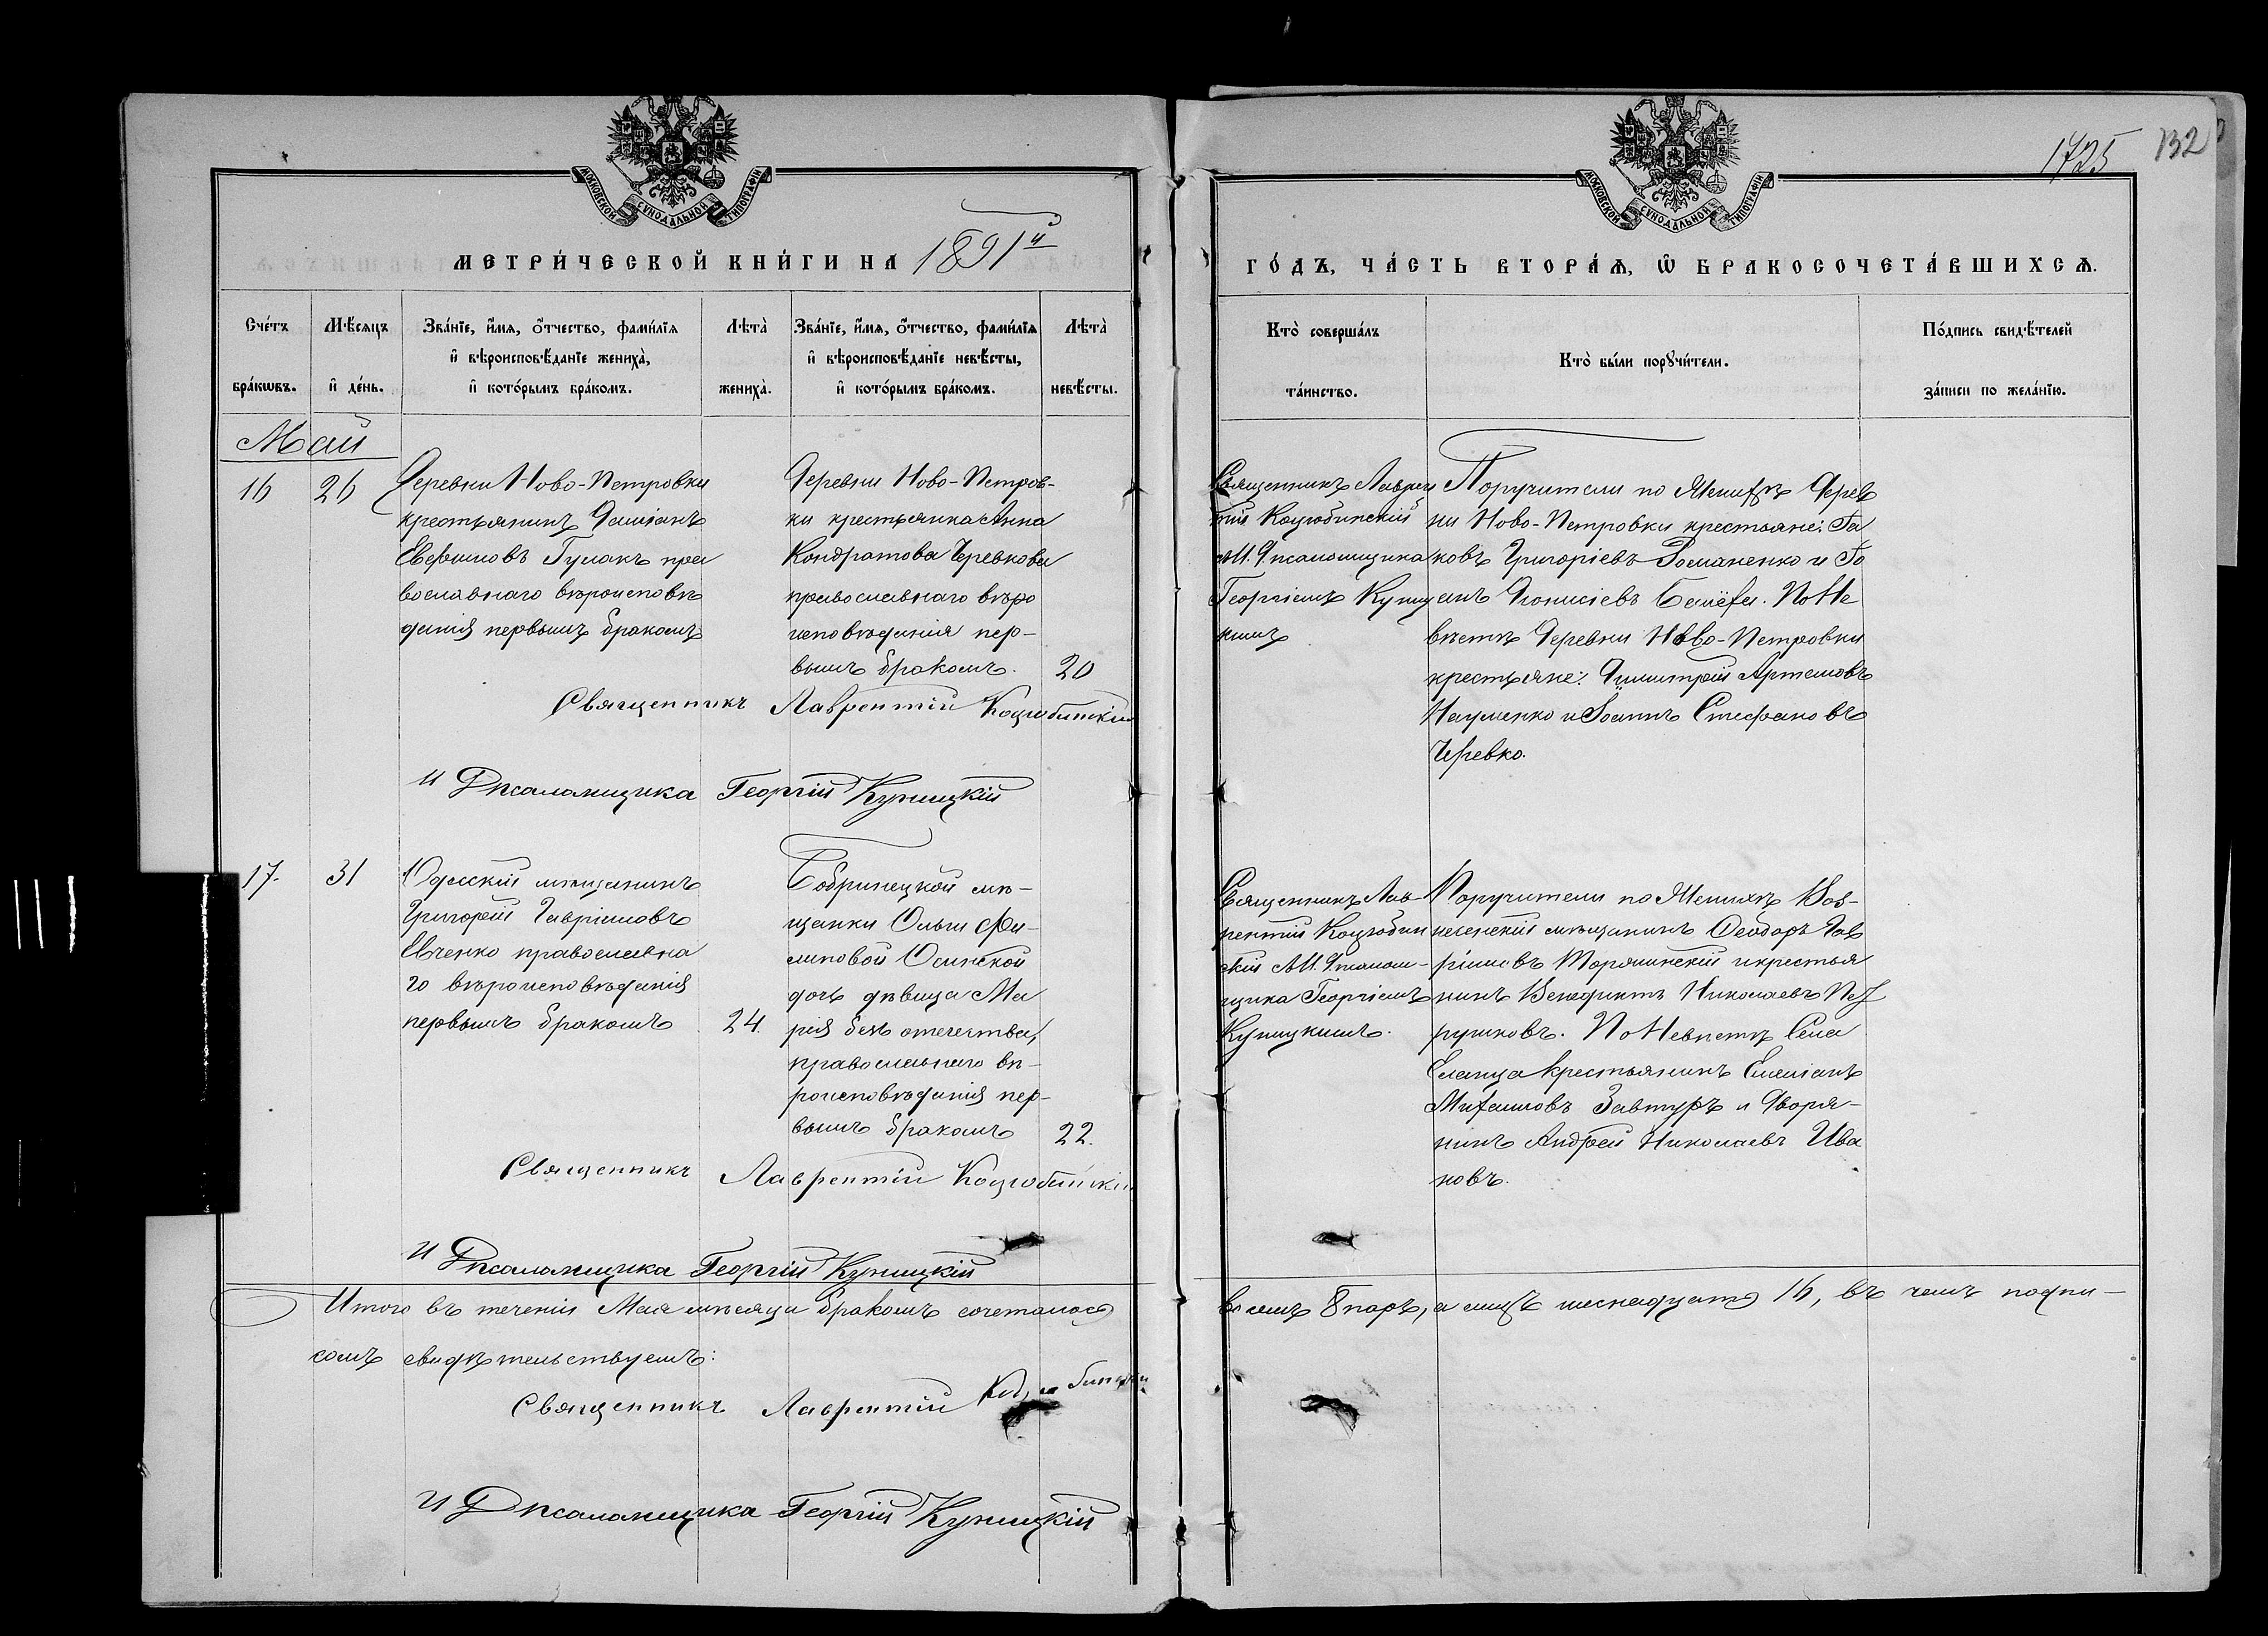 1725 132
МОСКОВСКОЙ СѴНОДАЛЬНОЙ ТИПОГРАФІИ
МОСКОВСКОЙ СѴНОДАЛЬНОЙ ТИПОГРАФІИ
МЕТРИ́ЧЕСКОЙ КНИ́ГИ НА 1891й
ГО́ДЪ, ЧА́СТЬ ВТОРА́Ѧ, Ѿ БРАКОСОЧЕТА́ВШИХСѦ.
Сче́тъ
бра́кѡвъ.
Мѣ́сяцъ
и де́нь.
Зва́нїе, и́мя, ѻ́тчество, фами́лїя
и вѣроисповѣ́данїе жениха̀,
и кото́рымъ бра́комъ.
Лѣта̀
жениха̀.
Зва́нїе, и́мя, ѻ́тчество, фами́лїя
и вѣроисповѣ́данїе невѣ́сты,
и кото́рымъ бра́комъ.
Лѣта̀
невѣ́сты.
Кто̀ соверша́лъ
та́инство.
Кто̀ бы́ли порꙋчи́тели.
По́дпись свидѣ́телей
за́писи по жела́нїю.
Май
16
26
Деревни Ново-Петровки
крестьянинъ Даміанъ
Евфимовъ Гулакъ пра
вославнаго вѣроисповѣ
данія первымъ бракомъ
Деревни Ново-Петров-
ки крестьянка Анна
Кондратова Черевкова
православнаго вѣро
исповѣданія пер-
вымъ бракомъ. 20
Священникъ Лаврен
тій Коцюбинскій
съ И. Д. псаломщика
Георгіемъ Куниц
кимъ
Поручители по Женихѣ Дерев
ни Ново-Петровки крестьяне: Іа
ковъ Григоріевъ Романенко и Іо
анъ Діонисіевъ По Не
вѣстѣ Деревни Ново-Петровки
крестьяне: Димитрій Артемовъ
Науменко и Іоаннъ Стефановъ
Черевко.
Священникъ Лаврентій Коцюбинскій
И Д псаломщика Георгій Куницкій
17.
31
Одесскій мѣщанинъ
Григорій Гавріиловъ
Евченко православна
го вѣроисповѣданія
первымъ бракомъ 24.
Бобринецкой мѣ-
щанки Ольги Фи-
липовой Осинской
дочь дѣвица Ма
рія безъ отечества,
православнаго вѣ-
роисповѣданія пер-
вымъ бракомъ 22.
Священникъ Лав-
рентій Коцюбин
скій съ И. Д. псалом-
щика Георгіемъ
Куницкимъ.
Поручители по Женихѣ Воз-
несенскій мѣщанинъ Ѳеодоръ Гав
ріиловъ Торянинскій и крестья
нинъ Венедиктъ Николаевъ Пет
рушковъ. По Невѣстѣ Села
Еланца Крестьянинъ Емеліанъ
Михаиловъ Завтуръ и Дворя-
нинъ Андрей Николаевъ Ива
новъ.
Священникъ Лаврентій Коцюбинскій
И Д псаломщика Георгій Куницкій
Итого въ теченіи Мая мѣсяца бракомъ сочеталось
восемь 8 паръ, а лицъ шеснадцать 16, въ чемъ подпи-
сомъ свидѣтельствуемъ:
Священникъ Лаврентій Коцюбинскій
И Д псаломщика Георгій Куницкій